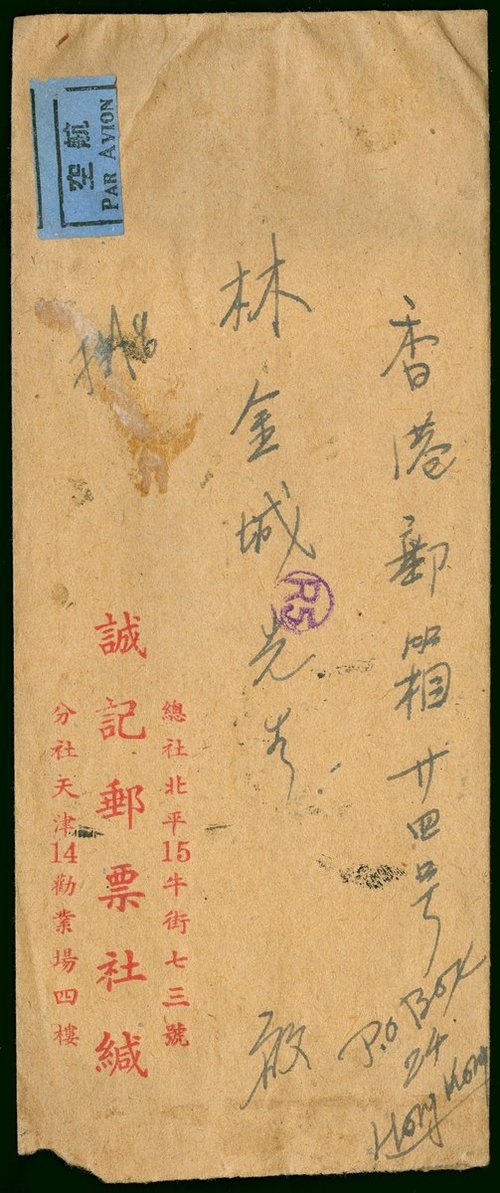 航空
PAR AVION
香港郵箱廿四号
P.O Box
24.
Hong Kong
林金城先生
啟
R5
總社北平15牛街七三號
誠記郵票社緘
分社天津14勸業場四樓